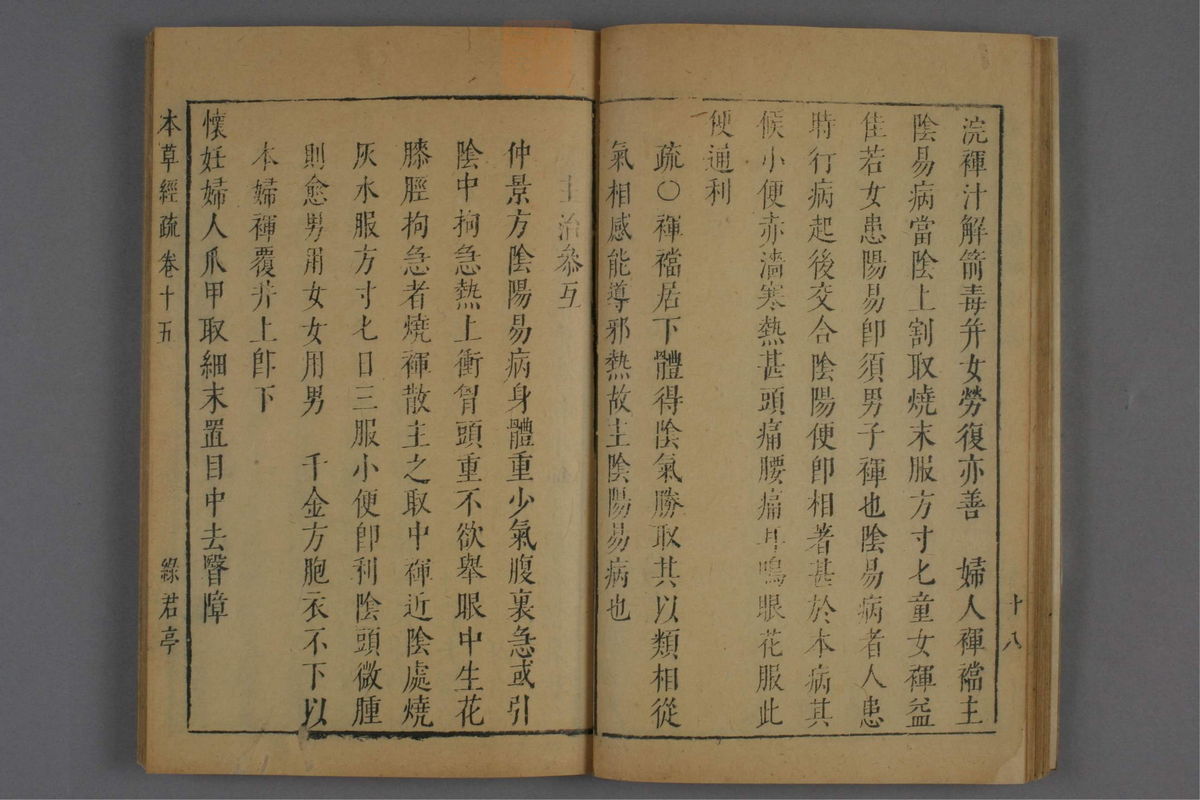 十八
浣褌汁解箭毒并女勞復亦善　婦人褌襠主
陰易病當陰上割取燒末服方寸匕童女褌益
佳若女患陽易卽須男子褌也陰易病者人患
時行病起後交合陰陽便卽相著甚於本病其
候小便赤濇寒熱甚頭痛腰痛耳鳴眼花服此
便通利
疏○褌襠居下體得陰氣勝取其以類相從
氣相感能導邪熱故主陰陽易病也
主治參互
仲景方陰陽易病身體重少氣腹裏急或引
陰中拘急熱上衝胷頭重不欲舉眼中生花
膝脛拘急者燒褌散主之取中褌近陰處燒
灰水服方寸匕日三服小便卽利陰頭微腫
則愈男用女女用男　千金方胞衣不下以
本婦褌覆井上卽下
懷妊婦人爪甲取細末置目中去瞖障
本草經疏卷十五　綠君亭